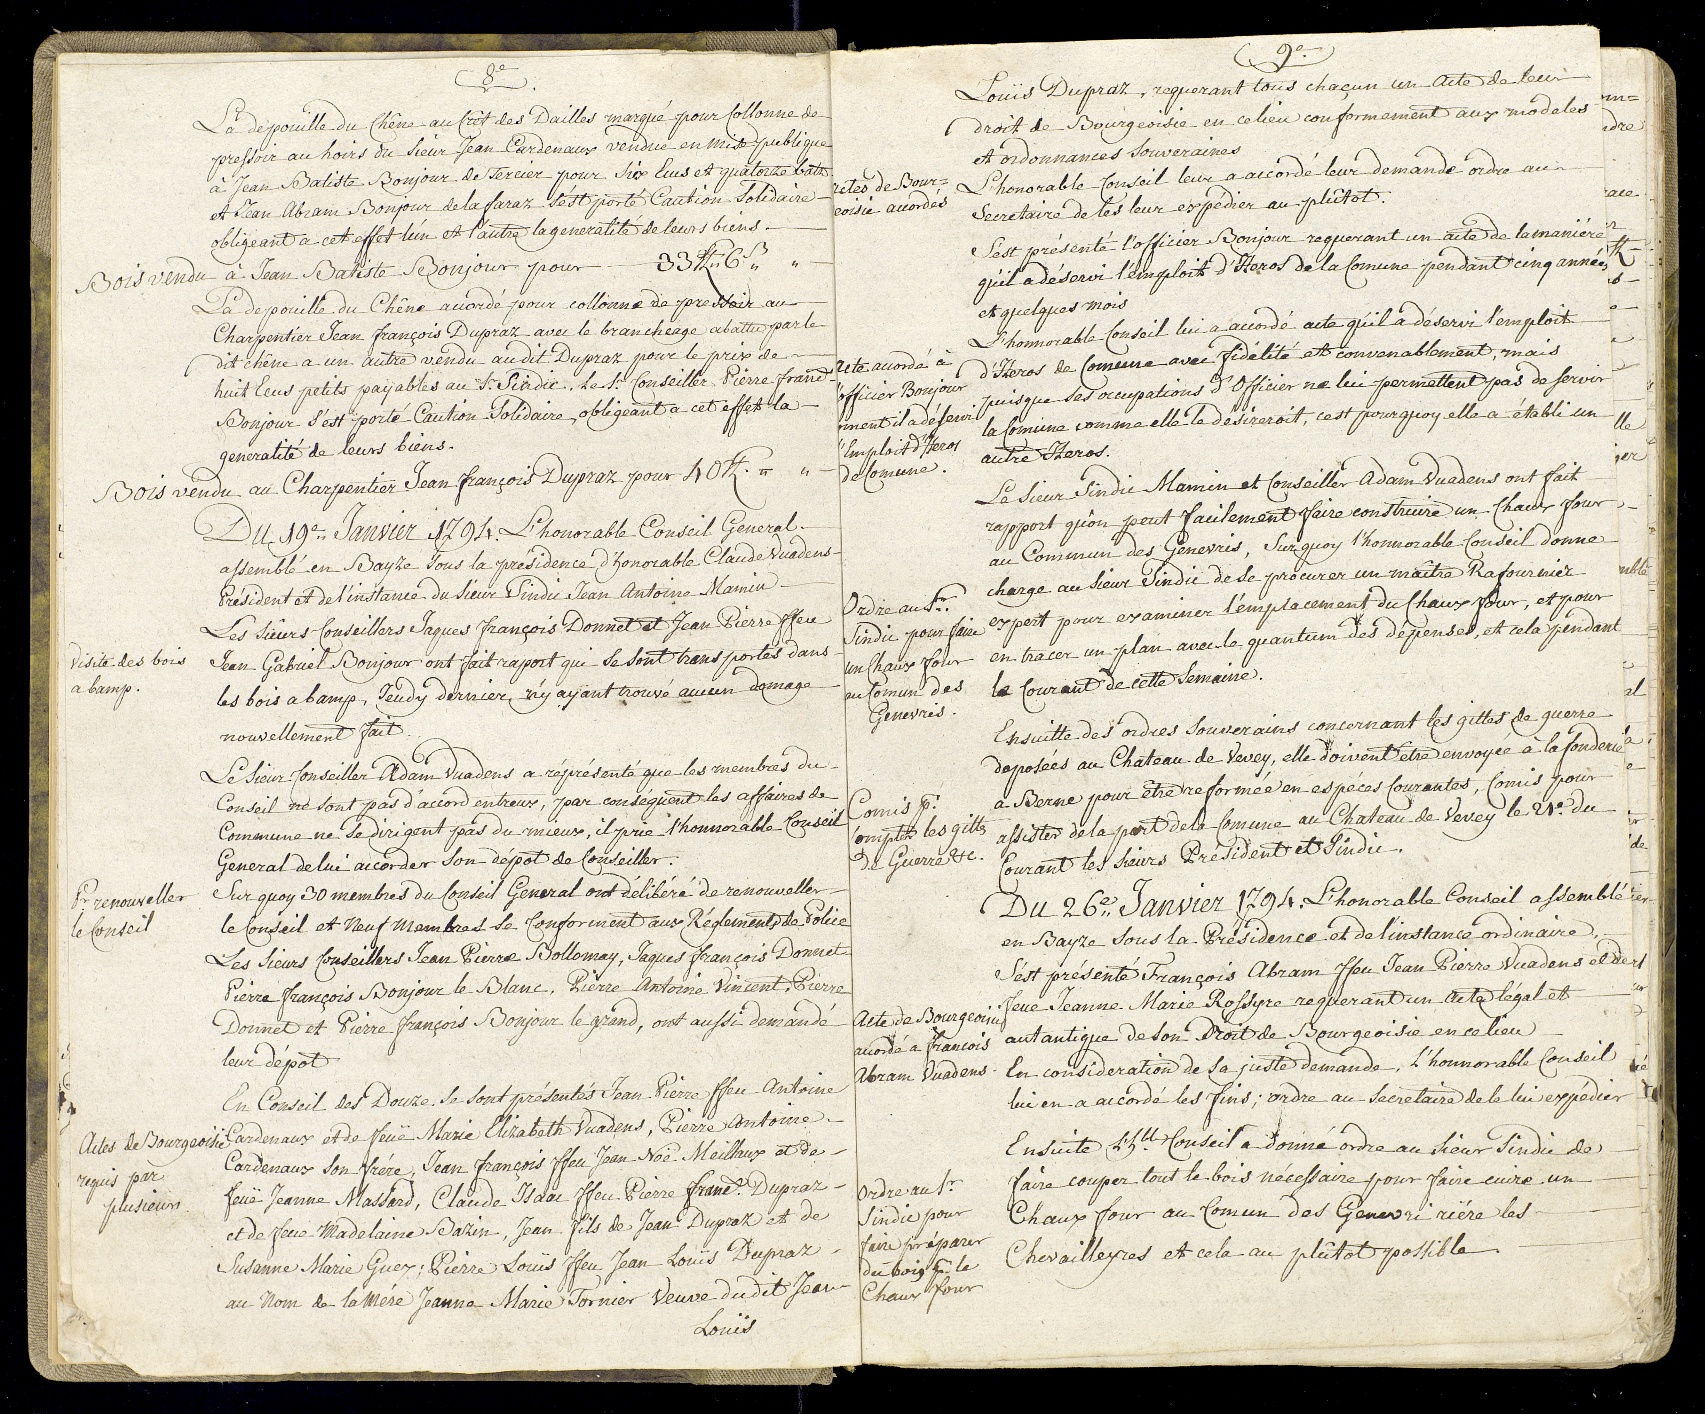 8.e
La dépouille du Chêne au Crêt des Dailles marqué pour Collonne de
pressoir au hoirs du Sieur Jean Cardenaux vendue en mise publique
à Jean Batiste Bonjour de Sercier pour Six Ecus et quatorze batz
et Jean Abram Bonjour de la faraz s'est porté Caution Solidaire
obligeant a cet effet l'un et l'autre la generalité de leurs biens.
Bois vendu à Jean Batiste Bonjour pour 33 ₶ 6 ß "
La depouille du Chêne acordé pour collonne de pressoir au
Charpentier Jean françois Dupraz avec le brancheage abattu par le
dit chêne a un autre vendu au dit Dupraz pour le prix de
huit Ecus petits payables au Sr. Sindic. Le Sr. Conseiller Pierre franc.
Bonjour s'est porté Caution Solidaire, obligeant a cet effet la
generalité de leurs biens.
Bois vendu au Charpentier Jean françois Dupraz pour 40 ₶. " "
Du 19.e Janvier 1794. L'honorable Conseil General
assemblé en Bayze sous la présidence d'honorable Claude Vuadens
Président et de l'instance du Sieur Sindic Jean Antoine Mamin
Visite des bois
a bamp.
Les Sieurs Conseillers Jaques françois Donnet et Jean Pierre ffeu
Jean Gabriel Bonjour ont fait raport qui se sont transportés dans
les bois a bamp, Jeudy dernier, n'y ayant trouvé aucun domage
nouvellement fait.
Le Sieur Conseiller Adam Vuadens a réprésenté que les membres du
Conseil ne sont pas d'accord entreux, par conséquent les affaires de
Commune ne se dirigent pas du mieux, il prie l'honnorable Conseil
General de lui accorder son dépot de Conseiller.
Pr. renouveller
le Conseil
Sur quoy 30 membres du Conseil General ont délibéré de renouveller
le Conseil et Neuf Membres se Conforment aux Réglements de Police
Les Sieurs Conseillers Jean Pierre Bollomay, Jaques françois Donnet
Pierre françois Bonjour le Blanc, Pierre Antoine Vincent, Pierre
Donnet et Pierre françois Bonjour le grand, ont aussi demandé
leur dépot
Actes de Bourgeoisie
requis par
plusieurs.
En Conseil des Douze se sont présentés Jean Pierre ffeu Antoine
Cardenaux et de feüe Marie Elizabeth Vuadens, Pierre Antoine
Cardenaux son frére, Jean françois ffeu Jean Noé Meillaux et de
feüe Jeanne Massard, Claude Isaac ffeu Pierre franc.s Dupraz
et de feue Madelaine Bazin, Jean fils de Jean Dupraz et de
Susanne Marie Guex; Pierre Louïs ffeu Jean Louïs Dupraz
au Nom de la Mére Jeanne Marie Tornier Veuve du dit Jean
Louïs
9.e
Louïs Dupraz, requerant tous chaçun un Acte de leur
droit de Bourgeoisie en ce lieu conformement aux modeles
et ordonnances Souveraines
ctes de Bour=
eoisie acordés
L'honorable Conseil leur a accordé leur demande ordre au
Secretaire de les leur expédier au plûtot.
S'est présenté l'officier Bonjour requerant un acte de la maniére
qu'il a déservi l'emploit d'Heros de la Comune pendant cinq années
et quelques mois
Acte acordé à
l'officier Bonjour
comment il a déservi
l'Emploit d'Heros
de Comune.
L'honnorable Conseil lui a accordé acte qu'il a déservi l'emploit
d'Heros de Comune avec fidélité et convenablement, mais
puisque ses occupations d'Officier ne lui permettent pas de servir
la Comune comme elle le désireroit, c'est pourquoy elle a établi un
autre Heros.
Le Sieur Sindic Mamin et Conseiller Adam Vuadens ont fait
rapport qu'on peut facilement faire construire un Chaux four
au Commun des Genevris, Sur quoy l'honnorable Conseil donne
charge au Sieur Sindic de se procurer un maître Rafournier
Ordre au Sr.
Sindic pour faire
un Chaux four
au Comun des
Genevris.
expert pour examiner l'emplacement du Chaux four, et pour
en tracer un plan avec le quantum des dépenses, et cela pendant
le Courant de cette Semaine.
Ensuitte des ordres Souverains concernant les gittes de guerre
déposées au Château de Vevey, elle doivent être envoyée à la fonderie
à Berne pour être reformée en espéces Courantes, Comis pour
Comis pr.
compter les gittes
de Guerre &c.
assister de la part de la Comune au Chateau de Vevey le 21.e du
Courant les Sieurs Président et Sindic.
Du 26.e Janvier 1794. L'honorable Conseil assemblé
en Bayze sous la Présidence et de l'instance ordinaire,
S'est présenté François Abram ffeu Jean Pierre Vuadens et de
feue Jeanne Marie Rossyre requerant un Acte légal et
autantique de son Droit de Bourgeoisie en ce lieu
Acte de Bourgeoisie
acordé a francois
Abram Vuadens.
En consideration de sa juste demande, l'honnorable Conseil
lui en a accordé les fins; ordre au Secretaire de le lui expédier
Ensuite Conseil a donné ordre au Sieur Sindic de
faire couper tout le bois nécessaire pour faire cuire un
Chaux four au Comun des Genevri riére les
Chevailleyres et cela au plûtot possible
Ordre au Sr.
Sindic pour
faire préparer
du bois pr. le
Chaux four